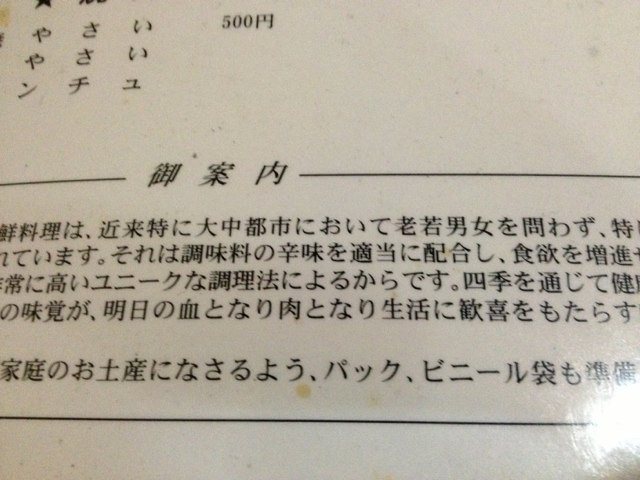 やさい 500円
やさい
ンチュ
御案内
鮮料理は、近来特に大中都市において老若男女を問わず、特に
れています。それは調味料の辛味を適当に配合し、食欲を増進せ
非常に高いユニークな調理法によるからです。四季を通じて健康
の味覚が、明日の血となり肉となり生活に歓喜をもたらす
家庭のお土産になさるよう、パック、ビニール袋も準備